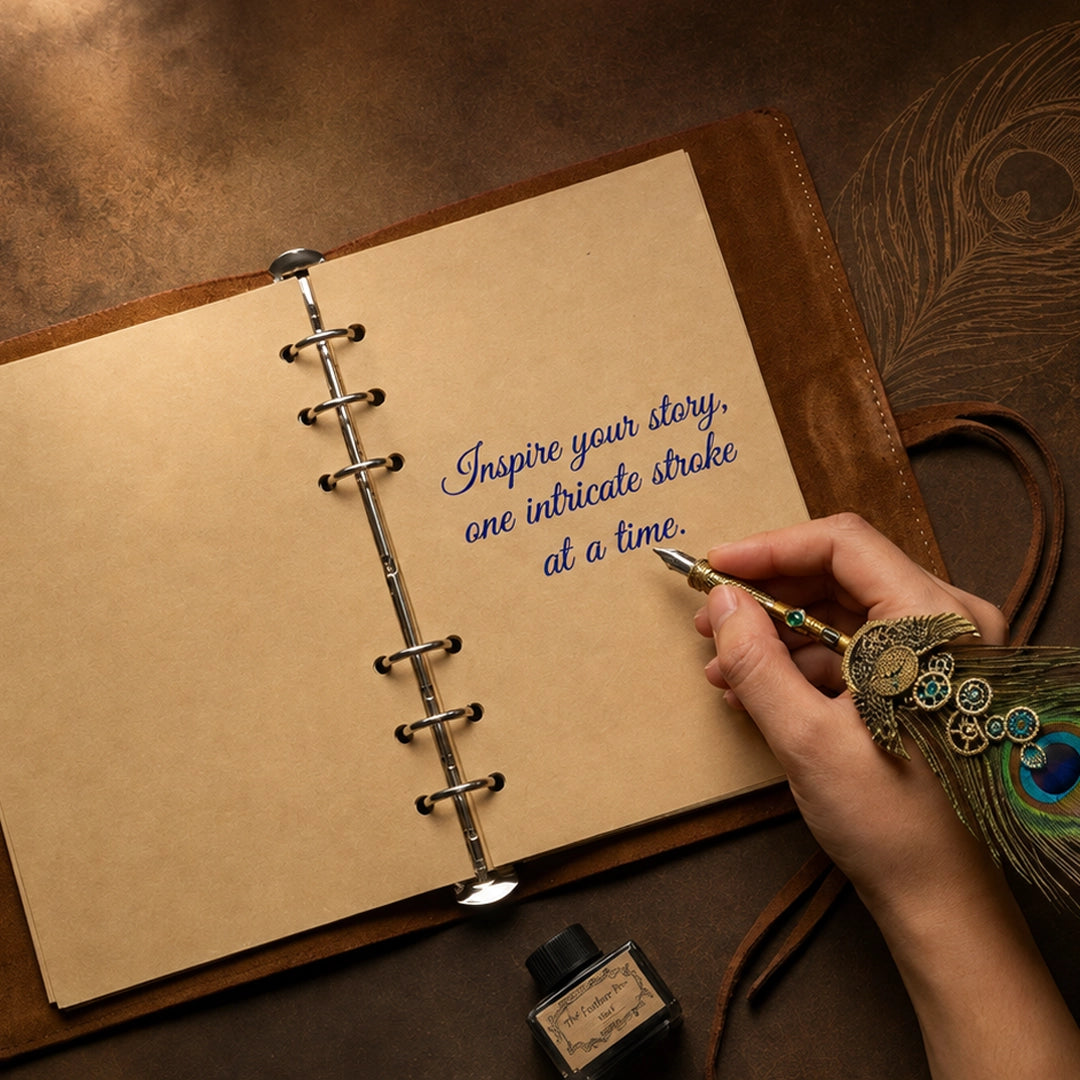 Inspire your story,
one intricate stroke
at a time.
The Feather Pro-